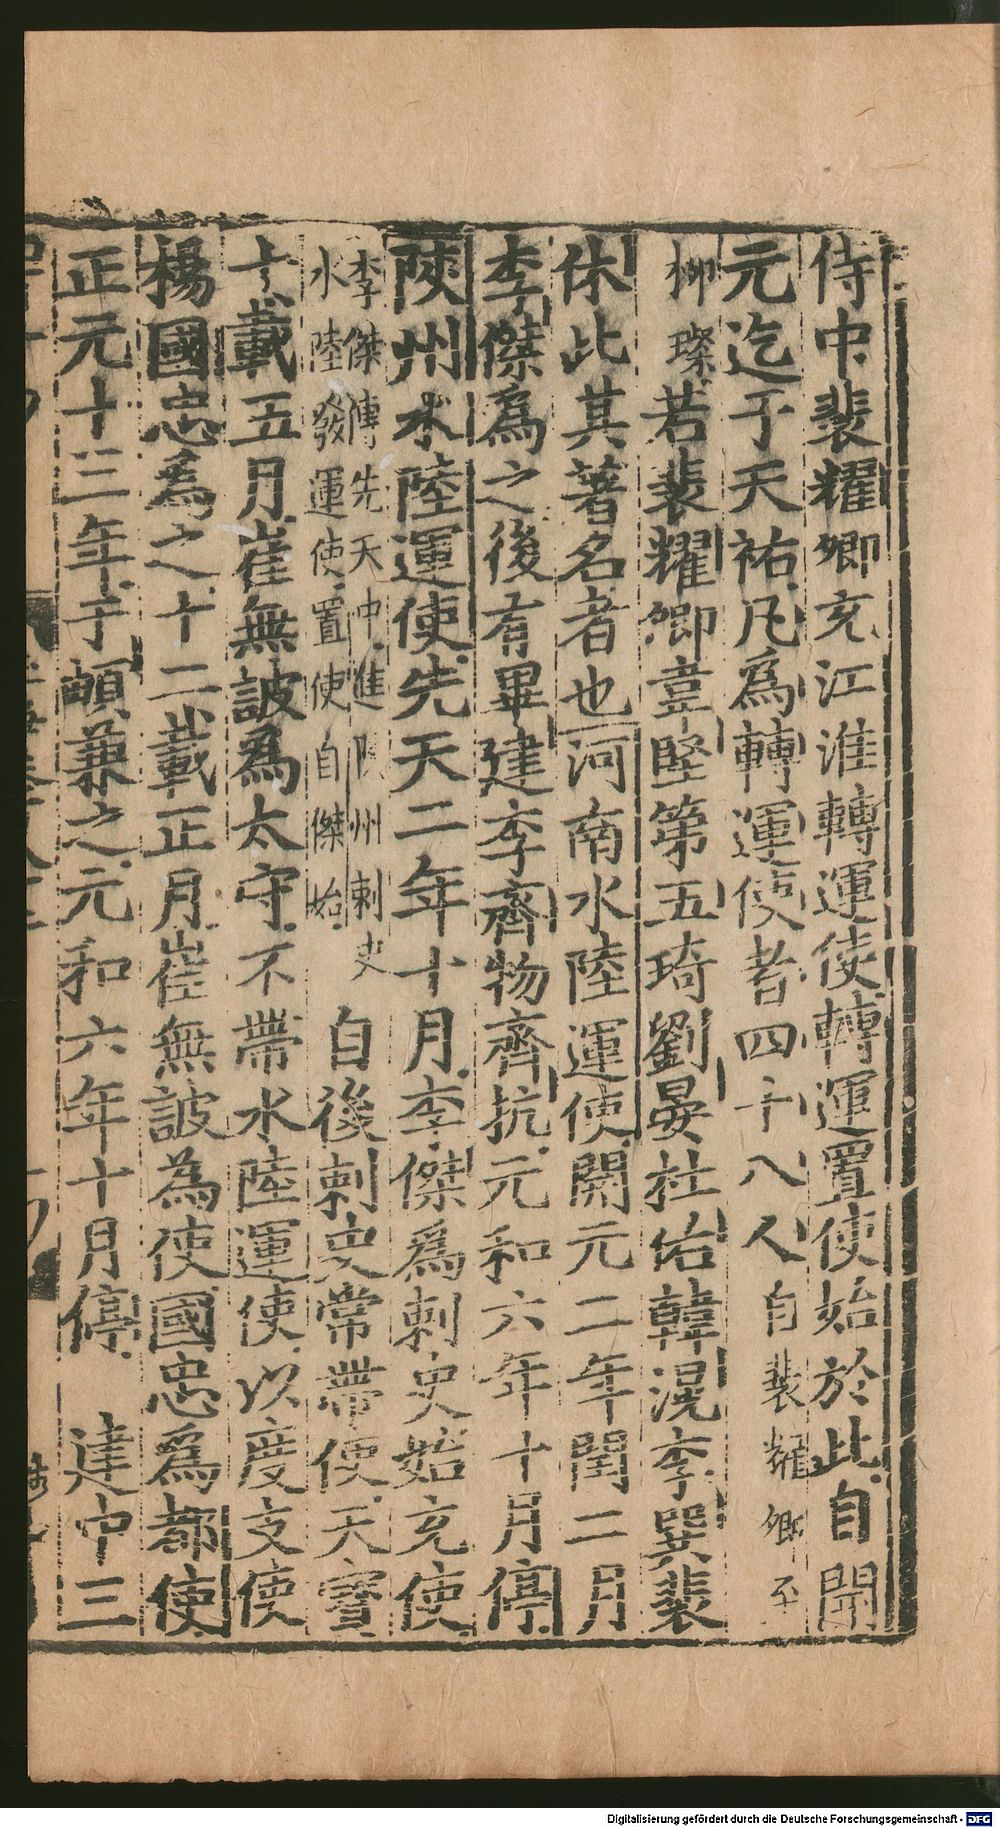 侍中裴耀卿充江淮轉運使轉運置使始於此自開
元迄于天祐凡爲轉運使者四十八人自裴耀卿至
柳璨若裴耀卿韋堅第五琦劉晏杜佑韓滉李巽裴
休此其著名者也河南水陸運使開元二年閏二月
李傑爲之後有畢建李齊物齊抗元和六年十月停
陝州水陸運使先天二年十月李傑爲刺史始充使
李傑傳先天中進陝州刺史
水陸發運使置使自傑始
自後刺史常帶使天寶
十載五月崔無詖爲太守不帶水陸運使以度支使
楊國忠爲之十二載正月崔無詖為使國忠爲都使
正元十三年于頔兼之元和六年十月停 建中三
Digitalisierung gefördert durch die Deutsche Forschungsgemeinschaft - DFG